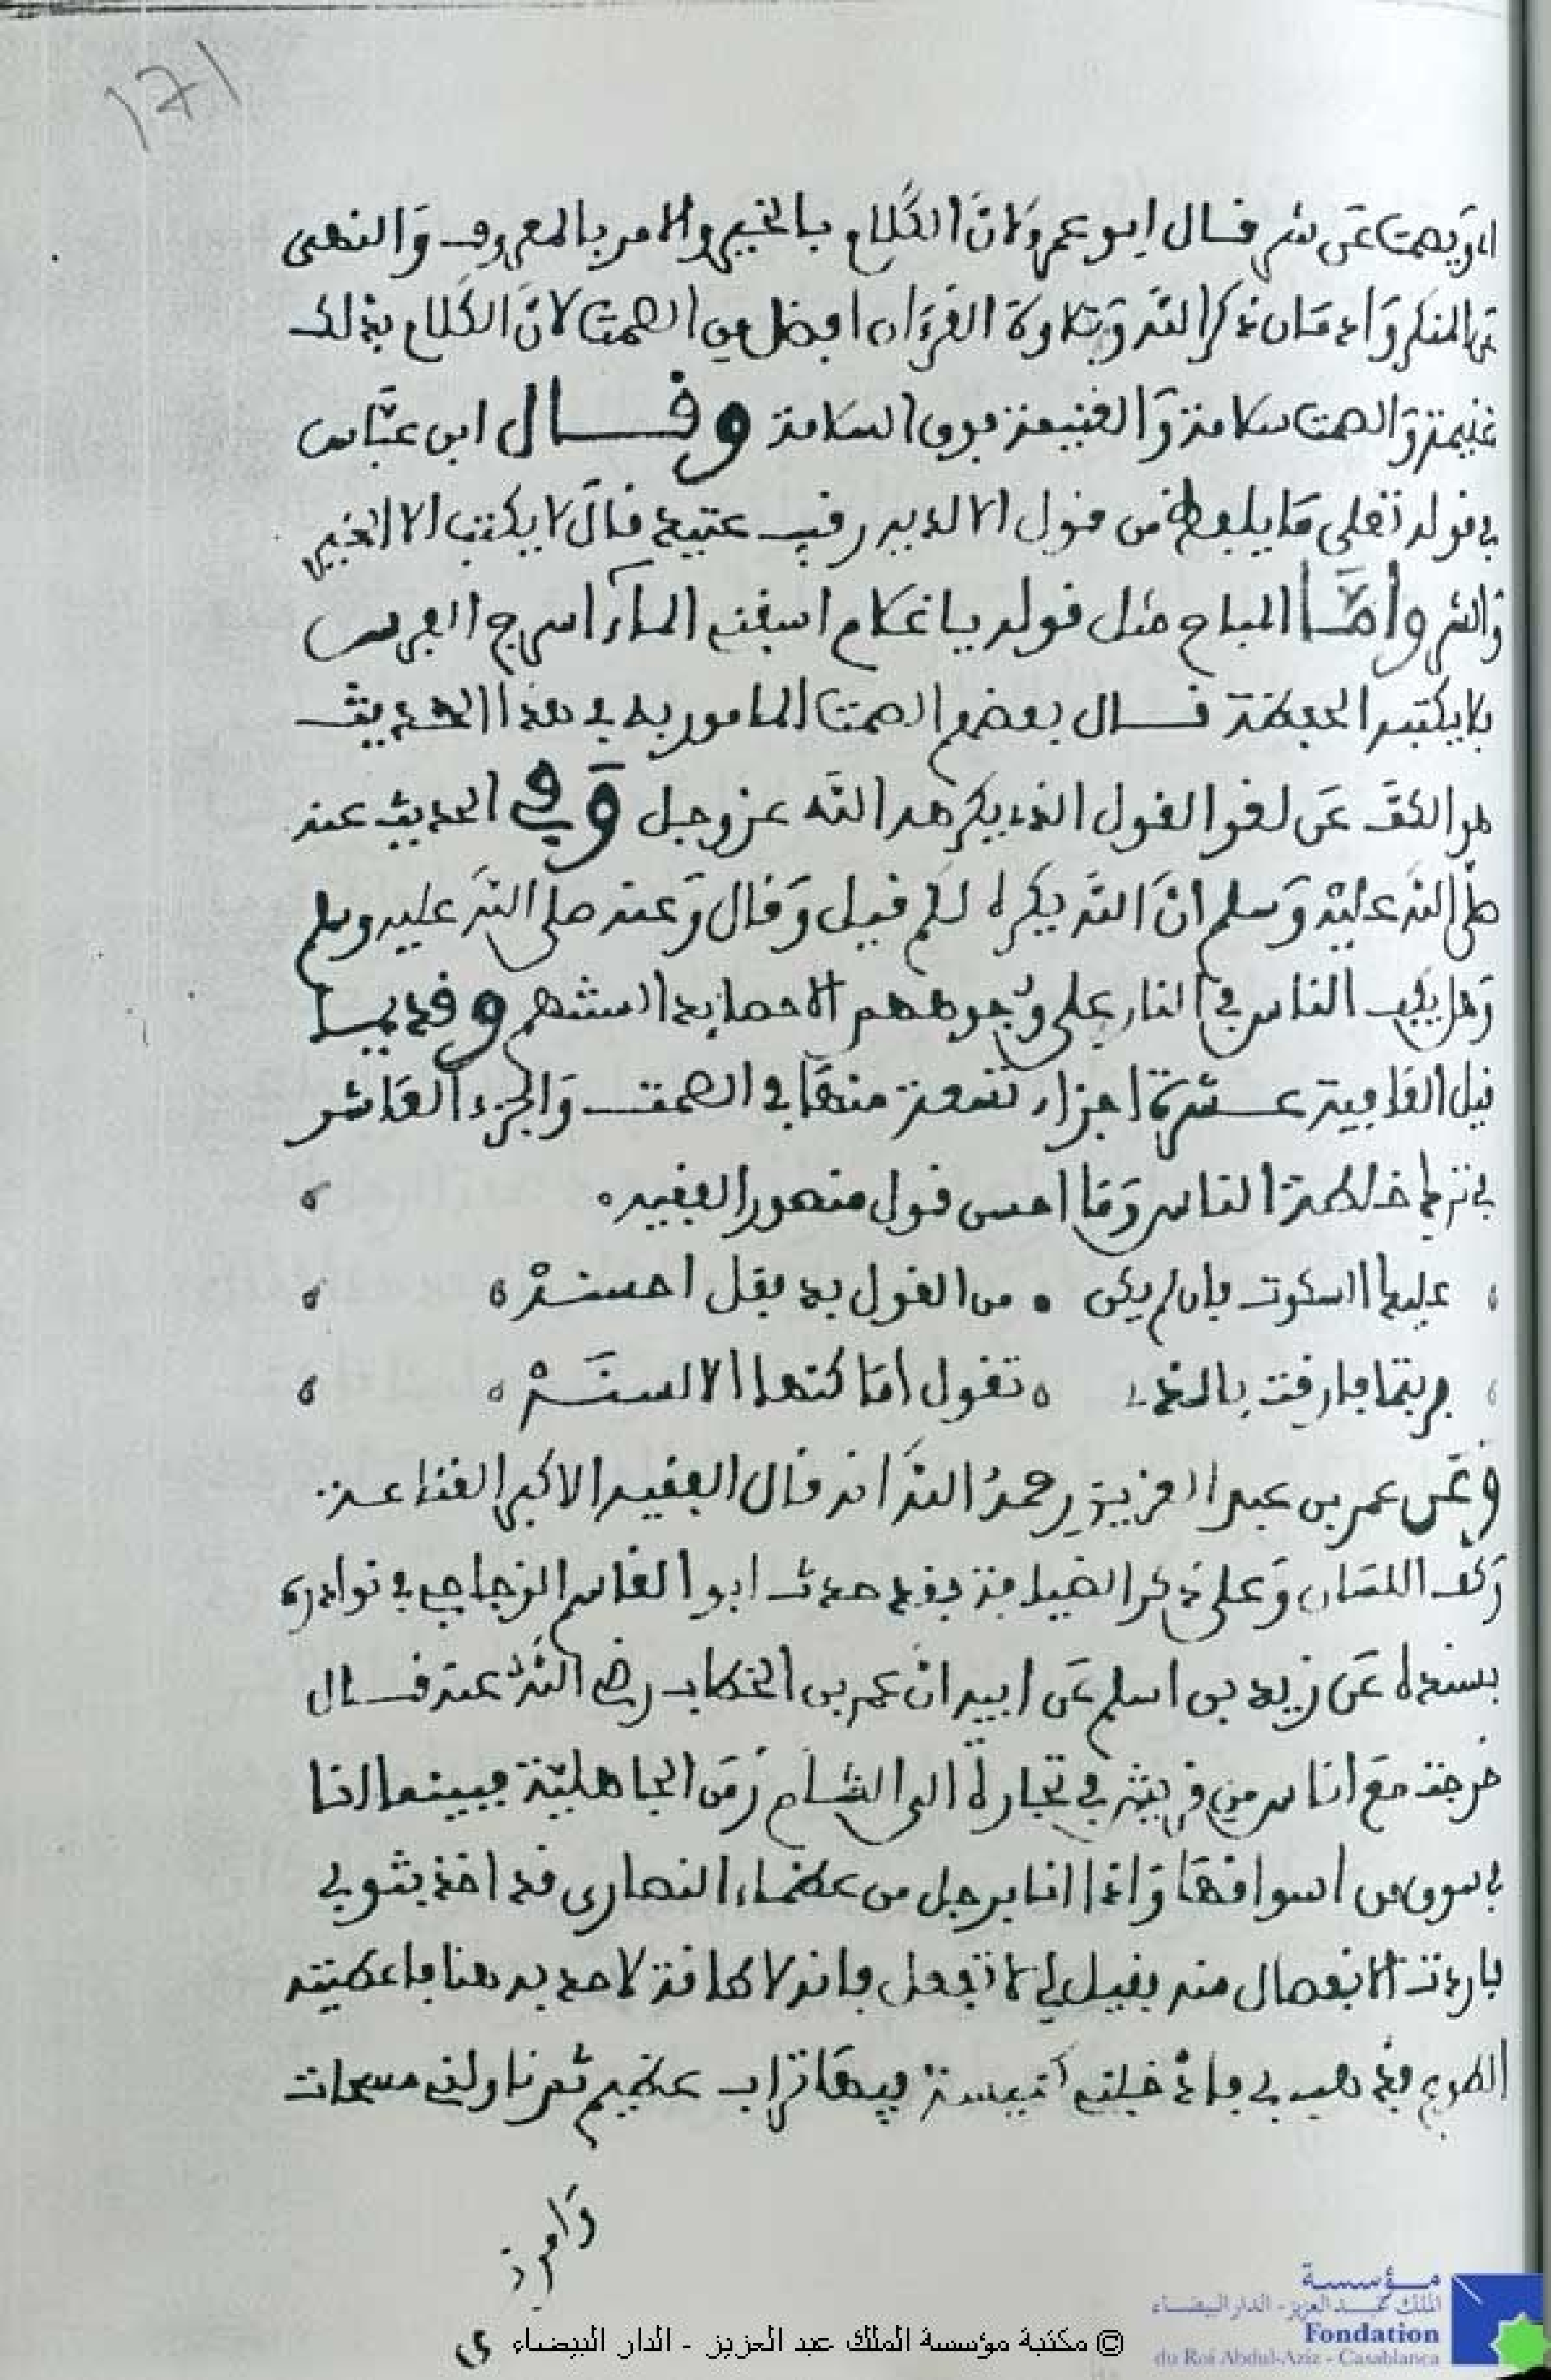 171
او يصمت عن شر قال ابو عمر ولان الكلام بالخير والامر بالمعروف والنهي
عن المنكر وادمان ذكر الله وتلاوة القرءان افضل من الصمت لان الكلام بذلك
غنيمة والصمت سلامة والغنيمة فوق السلامة وقال ابن عباس
في قوله تعلى ما يلفظ من قول الا لديه رقيب عتيد قال لا يكتب الا الخير
والشر واما المباح مثل قوله يا غلام اسقني الماء اسرج الفرس
فلا يكتبه الحفظة قال بعضهم الصمت المامور به في هذا الحديث
هو الكف عن لغو القول الذي يكرهه الله عز وجل وفي الحديث عنه
صلى الله عليه وسلم ان الله يكره لكم قيل وقال وعنه صلى الله عليه وسلم
وهل يكب الناس في النار على وجوههم الا حصايد السنتهم وقديما
قيل العافية عشرة اجزاء تسعة منها في الصمت والجزء العاشر
في ترك خلطة الناس وما احسن قول منصور الفقيه
عليك السكوت فان لم يكن من القول بد فقل احسنه
فربتما فارقت بالذي تقول اماكنها الالسنه
وعن عمر بن عبد العزيز رحمه الله انه قال الفقيه الاكبر القناعة
وكف اللسان وعلى ذكر الضيافة فقد حدث ابو القاسم الزجاجي في نوادره
بسنده عن زيد بن اسلم عن ابيه ان عمر بن الخطاب رضي الله عنه قال
خرجت مع اناس من قريش في تجارة الى الشام زمن الجاهلية فبينما انا
في سوق من اسواقها واذا انا برجل من عظماء النصارى قد اخذ بثوبي
فاردت الانفصال منه فقيل لي لا تفعل فانه لا طاقة لاحد به هنا فاعطيته
الطوع فذهب بي فادخلني كنيسة فيها تراب عظيم ثم ناولني مسحاة
وامرني
مؤسسة
الملك عبد العزيز - الدار البيضاء
Fondation
du Roi Abdul-Aziz - Casablanca
© مكتبة مؤسسة الملك عبد العزيز - الدار البيضاء